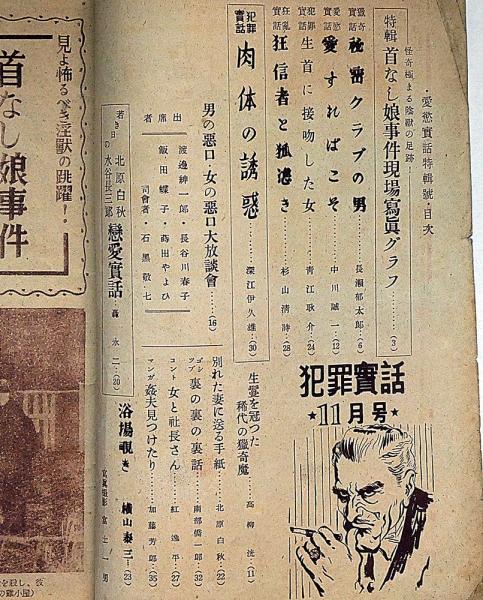 ・愛慾實話特輯號・目次
怪奇極まる陰獣の足跡!
特輯 首なし娘事件現場寫眞グラフ………(3)
猟奇實話 秘密クラブの男……長瀬郁太郎…(6)
愛慾實話 愛すればこそ……中川誠一…(12)
犯罪實話 生首に接吻した女……青江耿介…(24)
狂亂實話 狂信者と狐憑き……杉山清詩…(28)
犯罪實話 肉体の誘惑……深江伊久雄…(30)
犯罪實話
★11月号★
生霊を冠つた
稀代の獵奇魔……高柳 洸…(11)
男の悪口・女の悪口大放談會……(16)
出席者
渡邊紳一郎・長谷川春子
飯田蝶子・蒔田やよひ
司會者・石黒敬七
若き日の 北原白秋 水谷長三郎 戀愛實話 森永二…(20)
別れた妻に送る手紙……北原白秋…(22)
ゴシップ 裏の裏の裏話……南部僑一郎…(32)
コント 女と社長さん……紅逸平…(27)
マンガ 姦夫見つけたり……加藤芳郎…(35)
浴場覗き 横山泰三…(23)
寫眞撮影 富士一男
見よ怖るべき淫獣の跳躍!
首なし娘事件
を殺し、夜
の雞小屋)